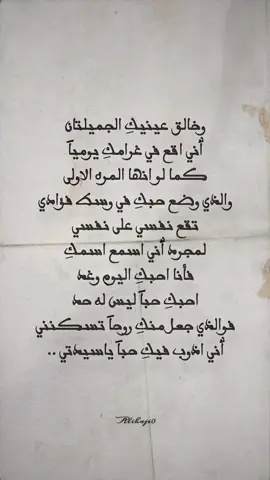 وخالق عينيكِ الجميلتان
أني اقع في غرامكِ يومياً
كما لو انها المره الاولى
والذي وضع حبكِ في وسط فؤادي
تقع نفسي على نفسي
لمجرد أني اسمع اسمكِ
فأنا احبكِ اليوم وغد
احبكِ حباً ليس له حد
فوالذي جعل منكِ روحاً تسكنني
أني اذوب فيكِ حباً ياسيدتي ..